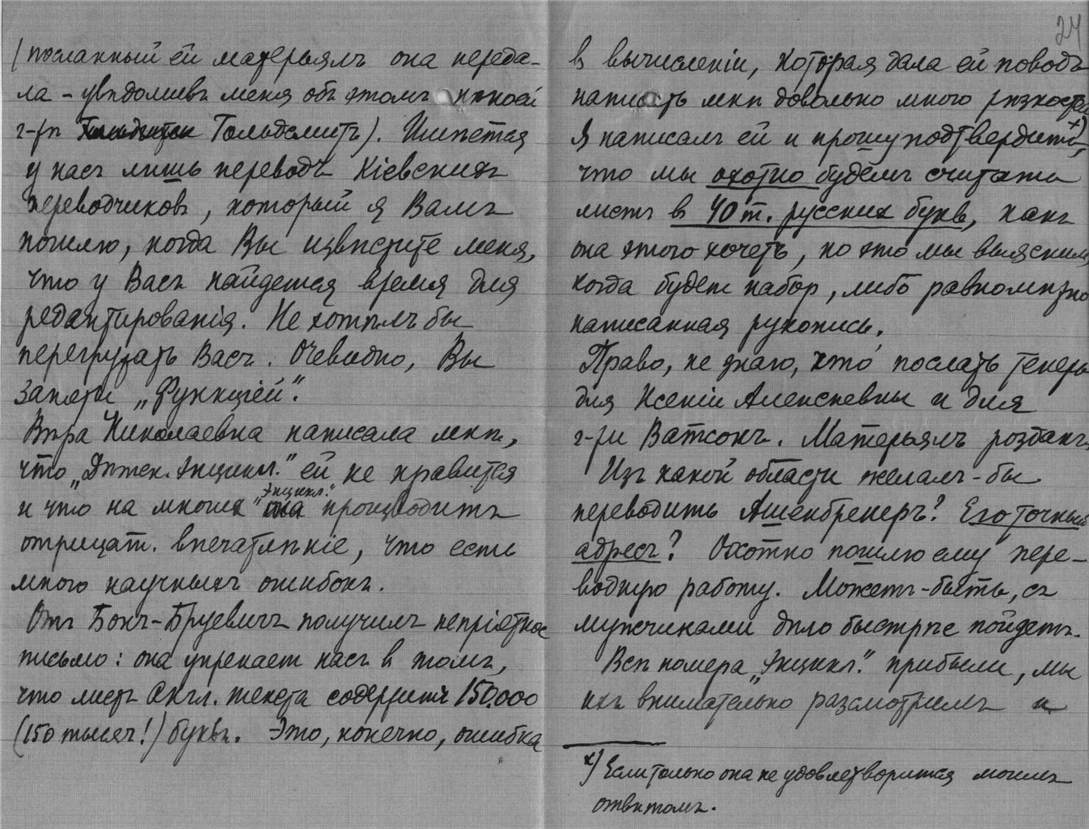 (посланный ей матерьялъ она переда-
ла – увѣдомивъ меня объ этомъ – нѣкоей
г-жѣ Гольдсмитъ). Имѣется
у насъ лишь переводъ Кіевскихъ
переводчиковъ, который я Вамъ
пошлю, когда Вы извѣстите меня,
что у Васъ найдется время для
редактированія. Не хотѣлъ бы
перегружать Васъ. Очевидно, Вы
заняты „Функціей".
Вѣра Николаевна написала мнѣ,
что „Дѣтск. Энцикл." ей не нравится
и что на многихъ „Энцикл." производитъ
отрицат. впечатлѣніе, что есть
много научныхъ ошибокъ.
Отъ Бонч-Бруевичъ получилъ непріятное
письмо: она упрекает насъ в томъ,
что листъ Англ. текста содержитъ 150.000
(150 тысяч!) буквъ. Это, конечно, ошибка
24
в вычисленіи, которая дала ей поводъ
написать мнѣ довольно много рѣзкостей.
Я написалъ ей и прошу подтвердить x),
что мы охотно будемъ считать
листъ в 40 т. русскихъ буквъ, какъ
она этого хочетъ, но это мы выяснимъ,
когда будет набор, либо равномѣрно
написанная рукопись.
Право, не знаю, что послать теперь
для Ксеніи Алексѣевны и для
г-жи Ватсонъ. Матерьялъ розданъ.
Изъ какой области желалъ-бы
переводить Ашенбренеръ? Его точный
адресъ? Охотно пошлю ему пере-
водную работу. Можетъ-быть, съ
мужчинами дѣло быстрѣе пойдетъ.
Всѣ номера „Энцикл." прибыли, мы
ихъ внимательно разсмотрѣли и
x) Если только она не удовлетворится моимъ
отвѣтомъ.